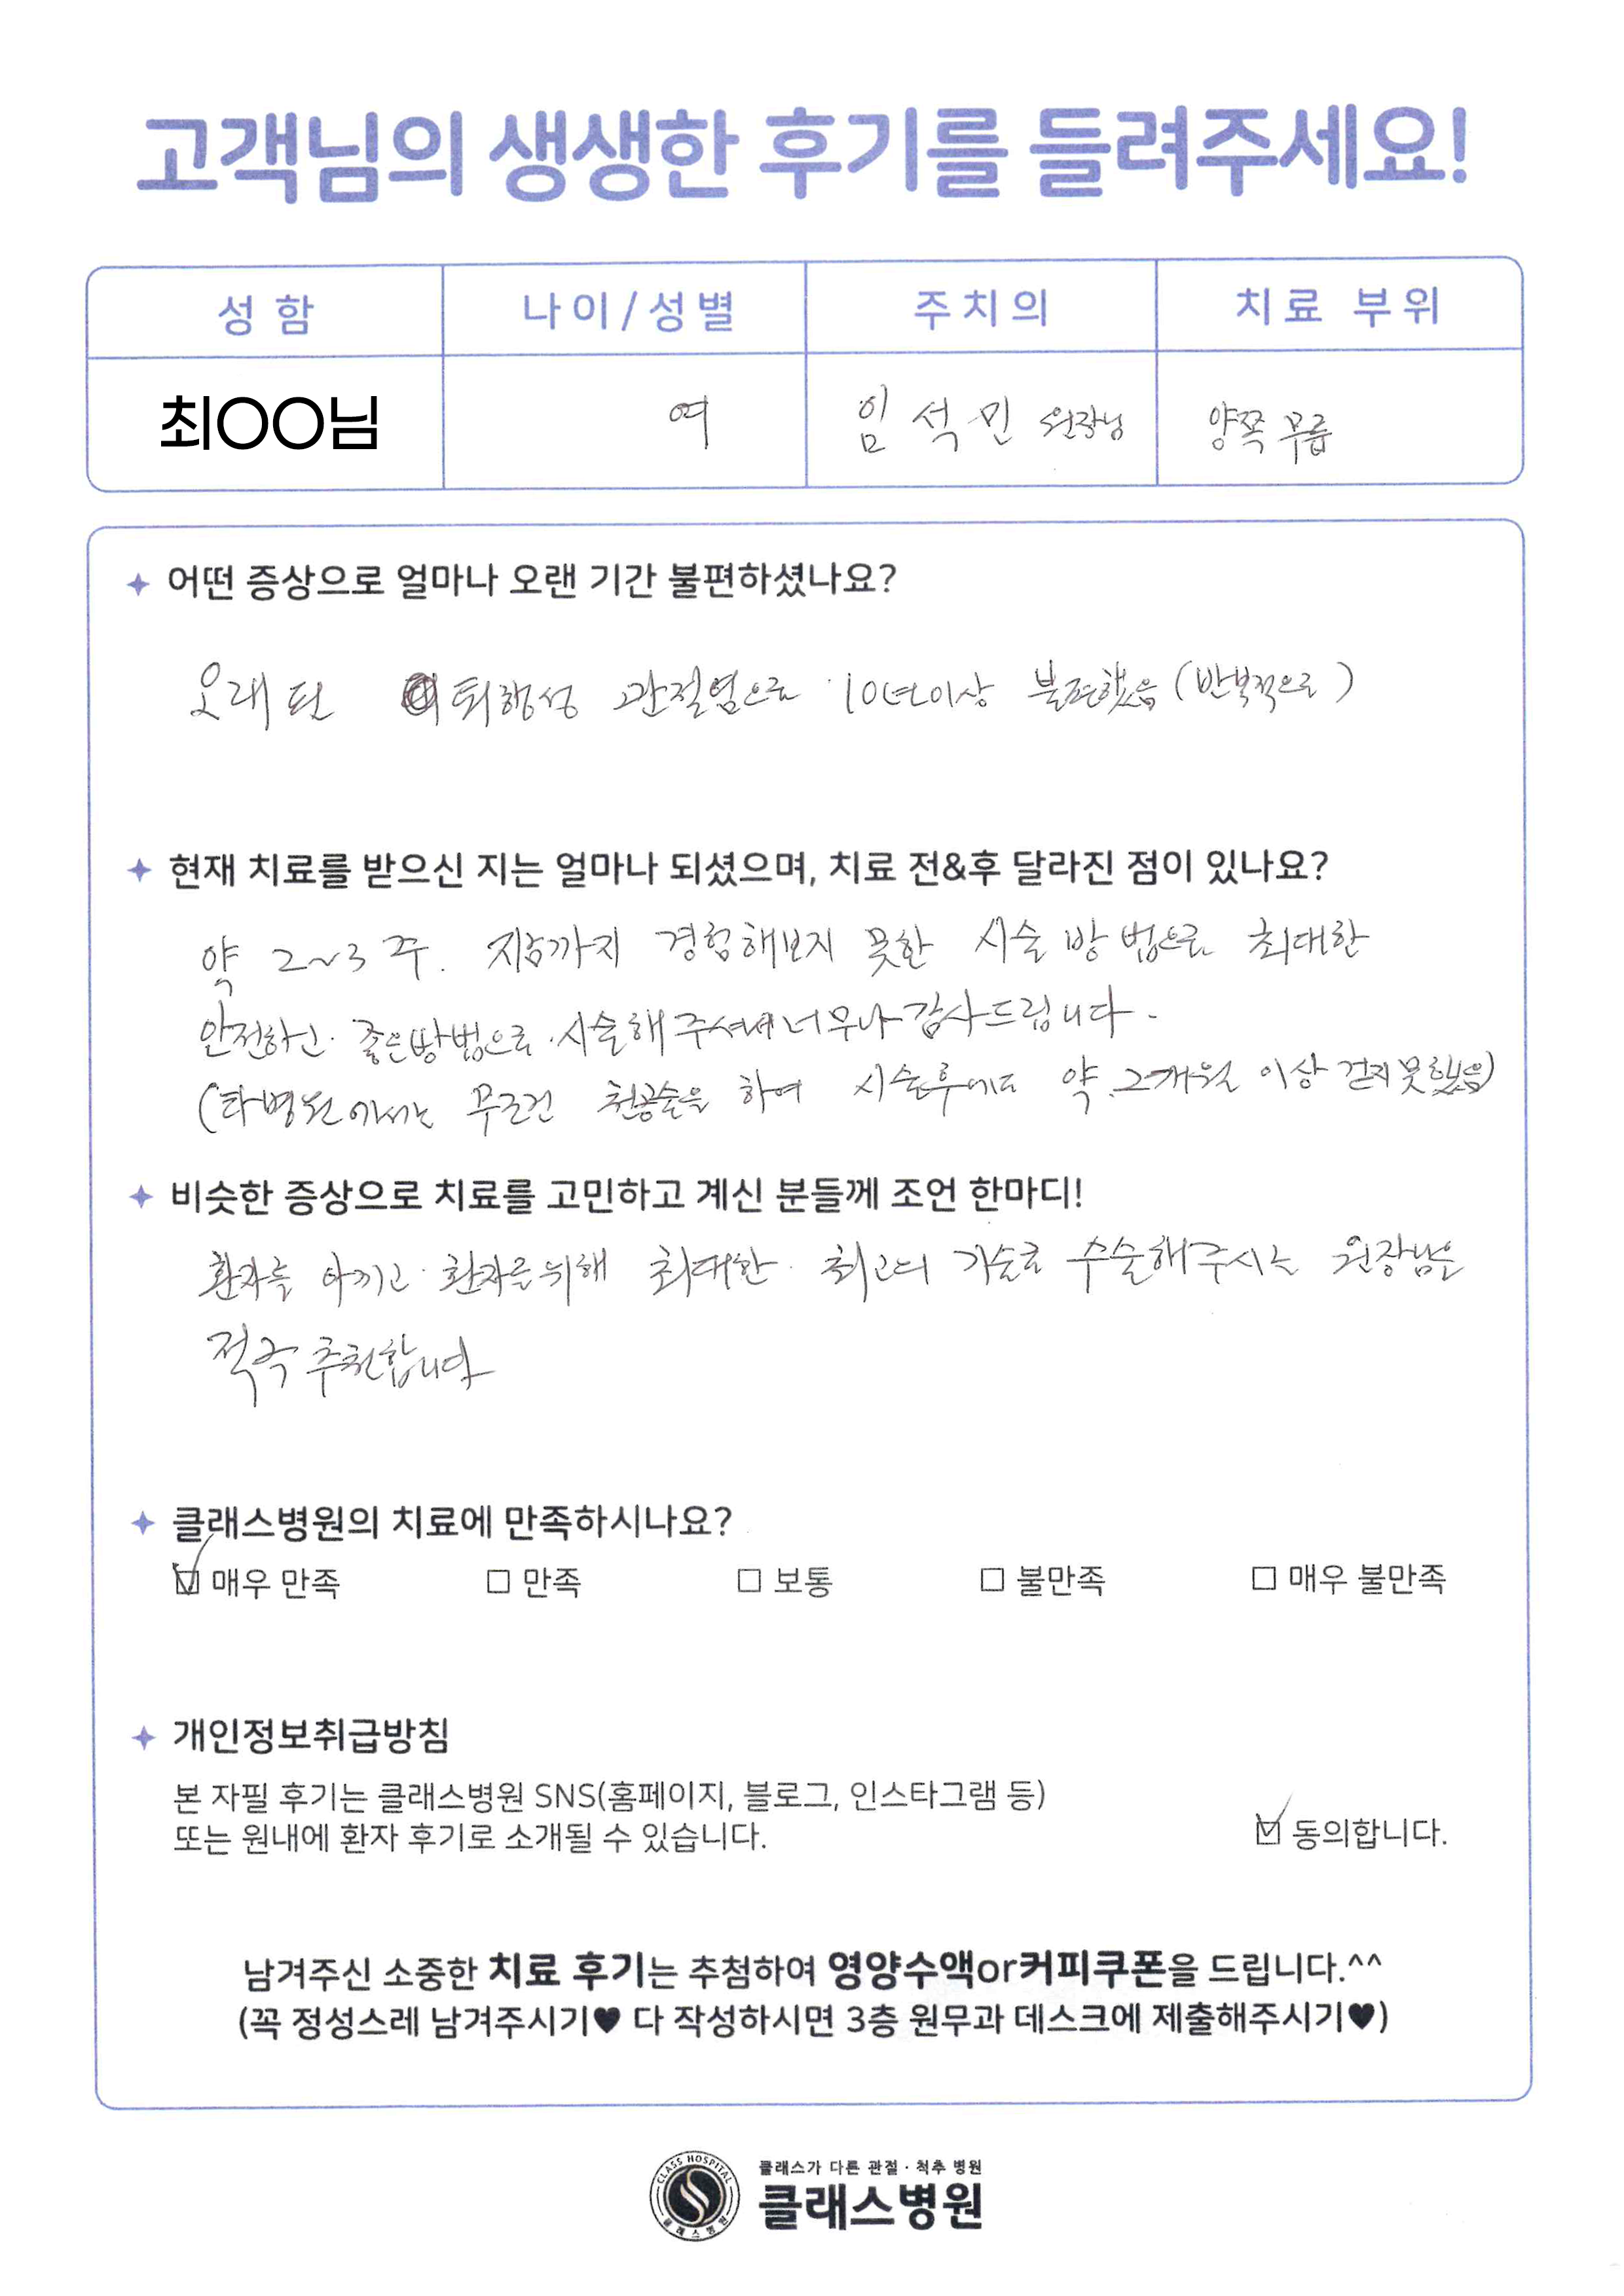 고객님의 생생한 후기를 들려주세요!
성 함 나이/성별 주치의 치료 부위
최○○님 여 임석민 원장님 양쪽 무릎
어떤 증상으로 얼마나 오랜 기간 불편하셨나요?
오래된 퇴행성 관절염으로 10년이상 불편했음 (반복적으로)
현재 치료를 받으신 지는 얼마나 되셨으며, 치료 전&후 달라진 점이 있나요?
약 2~3주. 지금까지 경험해보지 못한 시술 방법으로 최대한
안전하고 좋은방법으로 시술해주셔서 너무나 감사드립니다.
(타병원에서는 무조건 천공술을 하여 시술후에도 약 2개월 이상 걷지 못했음)
비슷한 증상으로 치료를 고민하고 계신 분들께 조언 한마디!
환자를 아끼고 환자를 위해 최대한 최고의 기술로 수술해주시는 원장님을
적극 추천합니다
클래스병원의 치료에 만족하시나요?
매우 만족 만족 보통 불만족 매우 불만족
개인정보취급방침
본 자필 후기는 클래스병원 SNS(홈페이지, 블로그, 인스타그램 등)
또는 원내에 환자 후기로 소개될 수 있습니다.
동의합니다.
남겨주신 소중한 치료 후기는 추첨하여 영양수액or커피쿠폰을 드립니다.^^
(꼭 정성스레 남겨주시기♥ 다 작성하시면 3층 원무과 데스크에 제출해주시기♥)
CLASS HOSPITAL
클래스병원
클래스가 다른 관절·척추 병원
클래스병원